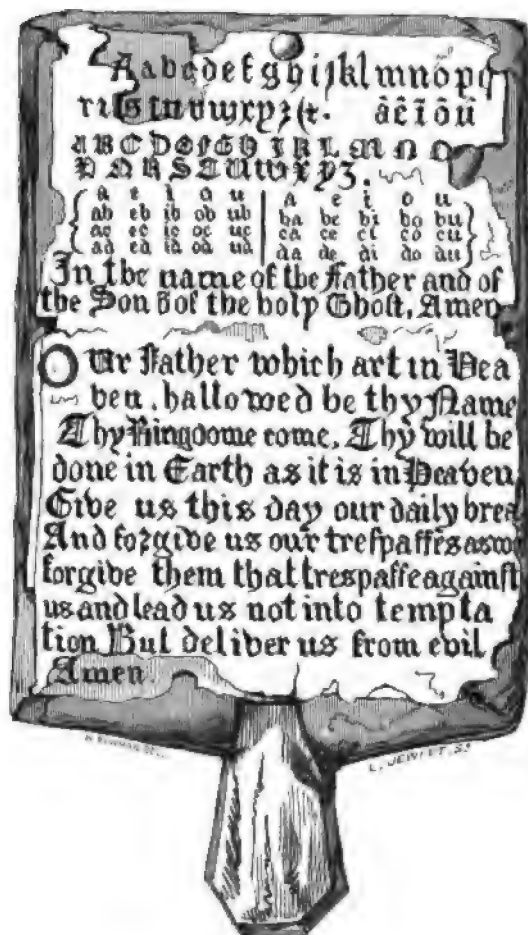 Aabcdefghijklmnopq
rſstuvwxyz&. ãẽĩõũ
ABCDEFGHIKLMNO
PQRSTUWXYZ.
a e i o u a e i o u
ab eb ib ob ub ba be bi bo bu
ac ec ic oc uc ca ce ci co cu
ad ed id od ud da de di do du
In the name of the Father and of
the Son & of the holy Ghoſt, Amen
OUr Father which art in Hea
ven, hallowed be thy Name
Thy Kingdome come, Thy will be
done in Earth as it is in Heaven
Give us this day our daily brea
And forgive us our treſpaſſes as we
forgive them that treſpaſſe againſt
us and lead us not into tempta
tion But deliver us from evil
Amen.
L. JEWITT. Sc